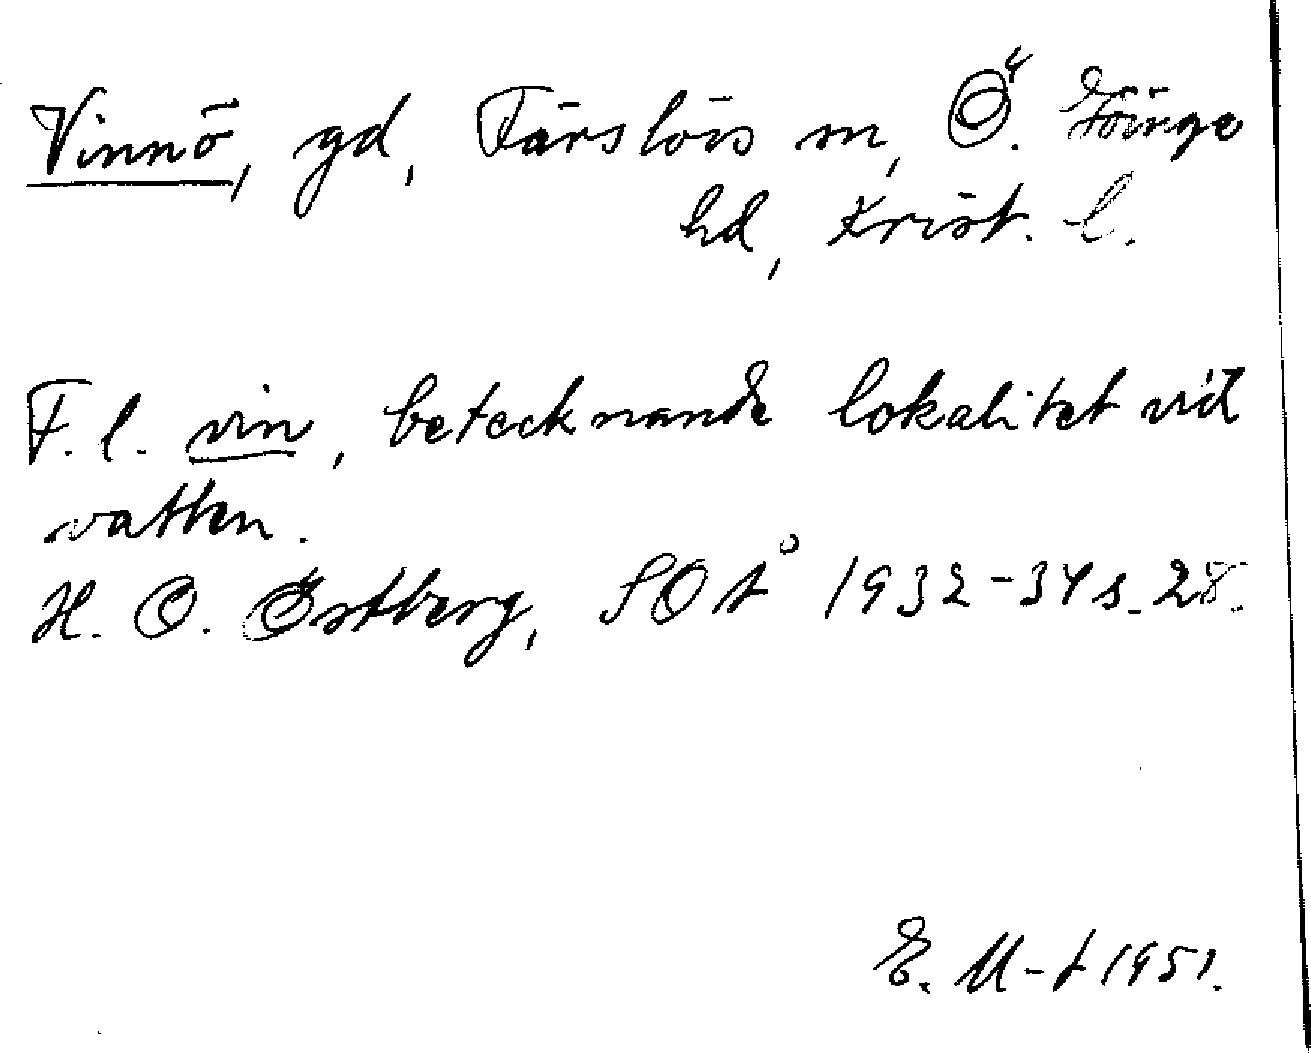 Vinnö, gd, Färslövs sn, Ö. Göinge
hd, Krist. l.
F. l. vin, betecknande lokalitet vid
vatten.
H. O. Östberg, SOÅ 1932-34 s. 28.
E. M-t 1951.